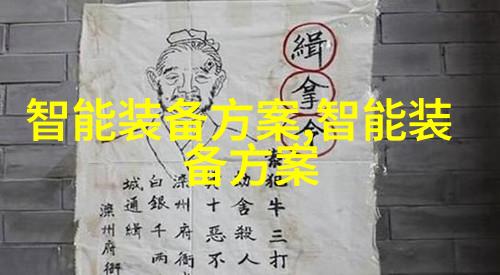 智能装备方案,智能装
备方案
緝拿令
犯牛三打
劫舍殺人
十惡不
滦州府衙
白銀千两
城通緝
滦州府衙